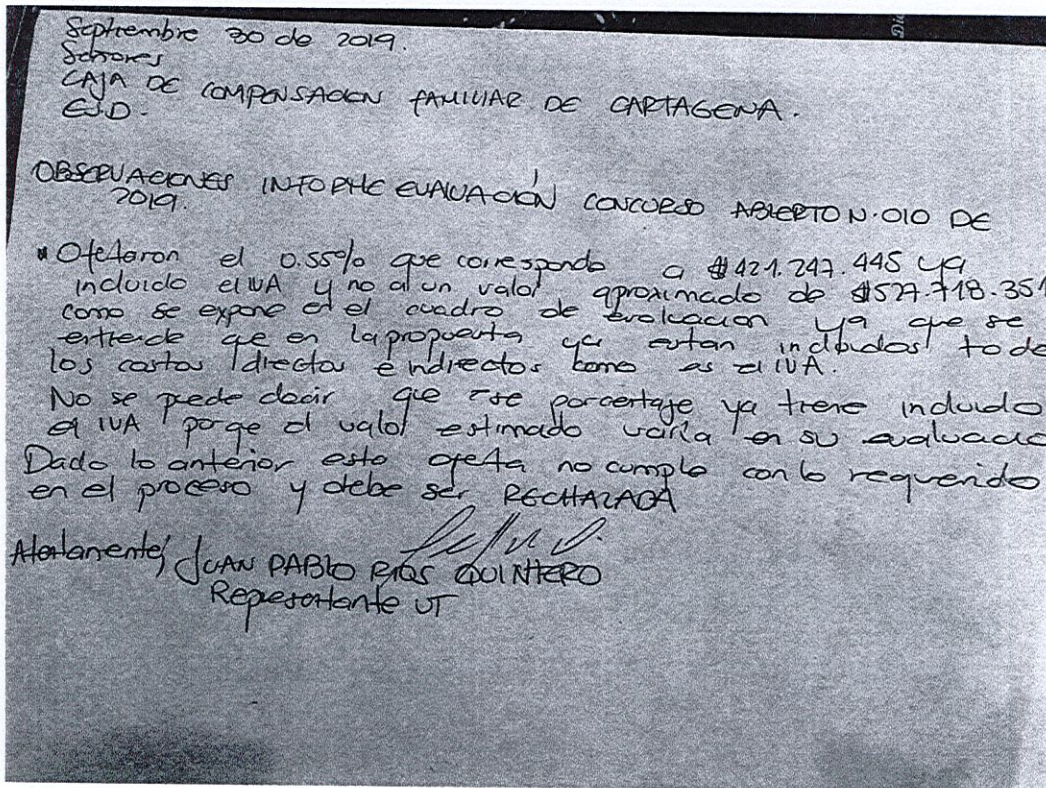 Septiembre 30 de 2019.
Señores
CAJA DE COMPENSACION FAMILIAR DE CARTAGENA.
E.S.D.
OBSERVACIONES INFORME EVALUACIÓN CONCURSO ABIERTO N.010 DE
2019.
* Ofertaron el 0.55% que corresponde a $421.247.445 ya
incluido el IVA y no al un valor aproximado de $527.718.351
como se expone en el cuadro de evaluacion ya que se
entiende que en la propuesta ya estan incluidos todo
los costos directos e indirectos como es el IVA.
No se puede decir que ese porcentaje ya tiene incluido
el IVA porqe el valor estimado varia en su evaluacio
Dado lo anterior esta oferta no cumple con lo requerido
en el proceso y debe ser RECHAZADA
Atentamente, JUAN PABLO RIOS QUINTERO
Representante UT